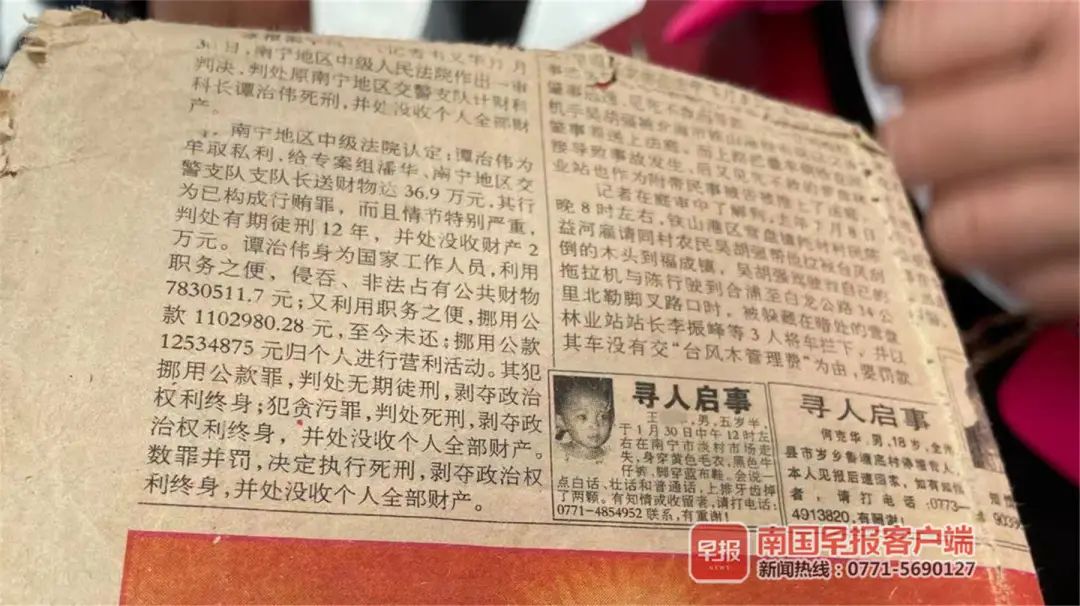 30日,南宁地区中级人民法院作出一审
判决,判处原南宁地区交警支队计财科
科长谭治伟死刑,并处没收个人全部财
产。
南宁地区中级法院认定:谭治伟为
牟取私利,给专案组潘华、南宁地区交
警支队支队长送财物达36.9万元,其行
为已构成行贿罪,而且情节特别严重,
判处有期徒刑12年,并处没收财产2
万元。谭治伟身为国家工作人员,利用
职务之便,侵吞、非法占有公共财物
7830511.7元;又利用职务之便,挪用公
款1102980.28元,至今未还;挪用公款
12534875元归个人进行营利活动。其犯
挪用公款罪,判处无期徒刑,剥夺政治
权利终身;犯贪污罪,判处死刑,剥夺政
治权利终身,并处没收个人全部财产。
数罪并罚,决定执行死刑,剥夺政治权
利终身,并处没收个人全部财产。
接导致事故发生,后又见死不救的
业站也作为附带民事被告被推上了法庭。
记者在庭审中了解到,去年7月8日
晚8时左右,铁山港区营盘镇
益河雇请同村农民吴胡强帮他拉被台风刮
倒的木头到福成镇,吴胡强驾驶自己的
拖拉机与陈行驶到合浦至白龙公路34公
里北勒脚叉路口时,被躲藏在暗处的营盘
林业站站长李振峰等3人将车拦下,并以
其车没有交“台风木管理费”为由,要罚款
寻人启事
王 ,男,五岁半,
于1月30日中午12时左
右在南宁市淡村市场走
失,身穿黄色毛衣,黑色牛
仔裤,脚穿蓝布鞋。会说一
点白话、壮话和普通话,上排牙齿掉
了两颗。有知情或收留者,请打电话:
0771-4854952联系,有重谢!
寻人启事
何克华,男,18岁,全州
县市岁乡鲁塘底村
本人见报后速回家,如有
者,请打电话:0773-
4913820,有酬谢!
早报
NEWS
南国早报客户端
新闻热线:0771-5690127